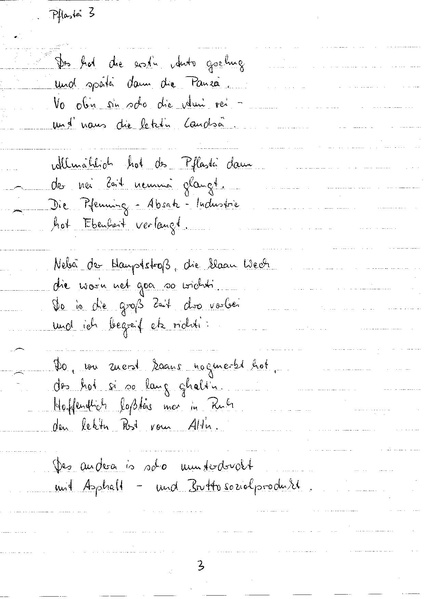 Pflastä 3
Des hot die erstn Auto gseeng
und spätä dann die Panzä.
Vo obn sin scho die Ami rei -
und naus die letztn Landsä.
Allmählich hot des Pflastä dann
der nei Zeit nemmä glangt.
Die Pfenning - Absatz - Industrie
hot Ebenheit verlangt.
Nebä der Hauptstroß, die klaan Wech
die worn net goa so wichti.
Do is die groß Zeit dro vorbei
und ich begreif etz richti:
Do, wu zuerst kaans nogmerkt hot,
des hot si so lang ghaltn.
Hoffentlich loßtäs mer in Ruh
den letztn Rest vom Altn.
Des andera is scho unterdruckt
mit Asphalt - und Bruttosozialprodukt.
3